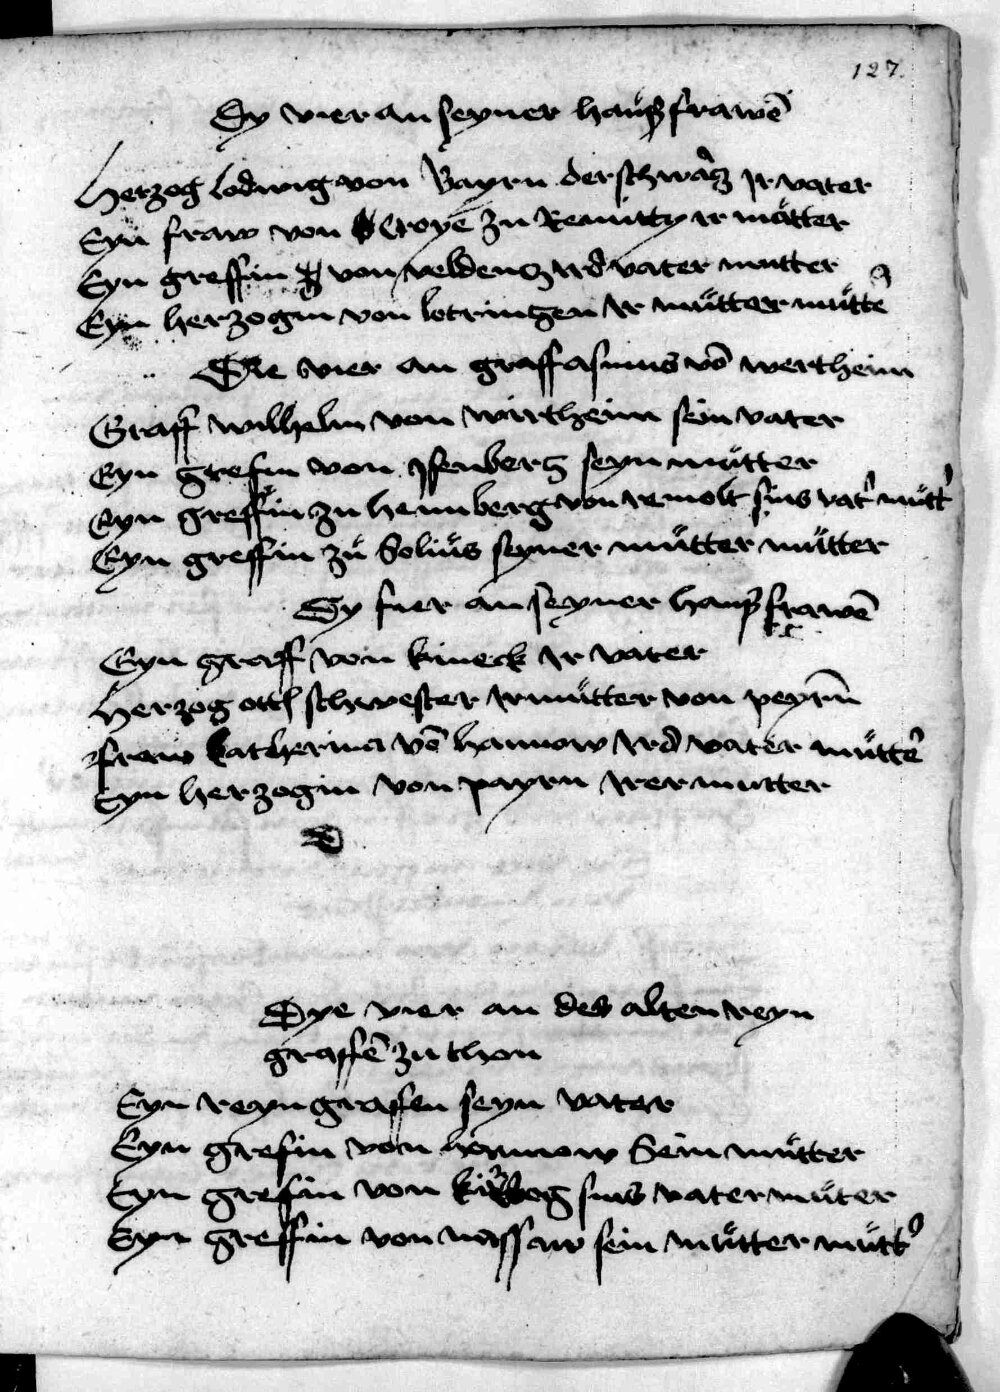 127.
Dy vier an seyner haußfrawē
Herzog lodwig von Bayrn der schwarz ir vater
Eyn fraw von Croye zu Remitty ir mutter
Eyn greffin von veldenz irs vater mutter
Eyn herzogin von lotringen ir mutter mutter
Die vier an graff asmus vō wertheim
Graff wilhelm von wirtheim sein vater
Eyn grefin von ysenberg seyn mutter
Eyn greffin zu hennberg von remolt sins vatr muttr
Eyn greffin zu Solms seyner mutter mutter
Dy fier an seyner haußfrawē
Eyn graff von kineck ir vater
Herzog ottl schwester ir mutter von peyrn
fraw katherina vō hannow irs vater mutter
Eyn herzogin von payrn irer mutter
Dye vier an des alten reyn
graffē zu thon
Eyn reyngraffen seyn vater
Eyn grefin von hannow Sein mutter
Eyn greffin von sins vater muter
Eyn greffin von nassaw sein mutter muttr